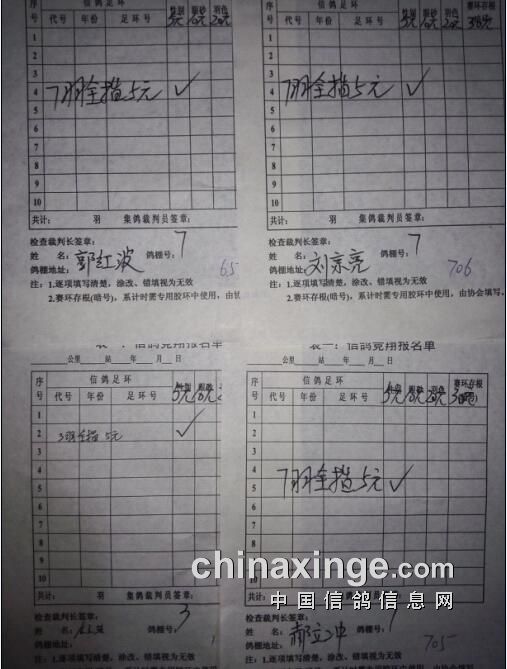 序号 信鸽足环
代号 年份 足环号
5元 10元 20元
1
2
3
4 7羽全指5元 ✓
5
6
7
8
9
10
共计: 羽 集鸽裁判员签章:
检查裁判长签章: 7
姓 名: 郭红波 鸽棚号:
鸽棚地址: 65
注: 1.逐项填写清楚,涂改、错填视为无效
2.赛环存根(暗号),累计时需专用胶环中使用,由协
序号 信鸽足环 赛环存根
代号 年份 足环号
5元 10元 20元
1
2
3
4 7羽全指5元 ✓
5
6
7
8
9
10
共计: 羽 集鸽裁判员签章:
检查裁判长签章: 7
姓 名: 刘京亮 鸽棚号:
鸽棚地址: 706
注: 1.逐项填写清楚,涂改、错填视为无效
2.赛环存根(暗号),累计时需专用胶环中使用,由协会填写。
表一:信鸽竞翔报名单
公里 站 年 月 日
序号 信鸽足环
代号 年份 足环号
5元 10元
1
2 3羽全指5元 ✓
3
4
5
6
7
8
9
10
共计: 羽 集鸽裁判员签章:
检查裁判长签章: 3
姓 名: 鸽棚号:
鸽棚地址:
注: 1.逐项填写清楚,涂改、错填视为无效
表一:信鸽竞翔报名单
公里 站 年 月 日
序号 信鸽足环 赛环存根
代号 年份 足环号
5元 10元 20元
1
2
3
4 7羽全指5元 ✓
5
6
7
8
9
10
共计:
检查裁判长签章:
姓 名: 郝立冲 鸽棚号:
鸽棚地址: 705
注: 1.逐项填写清楚,涂改、错填视为无效
chinaxinge.com
中国信鸽信息网